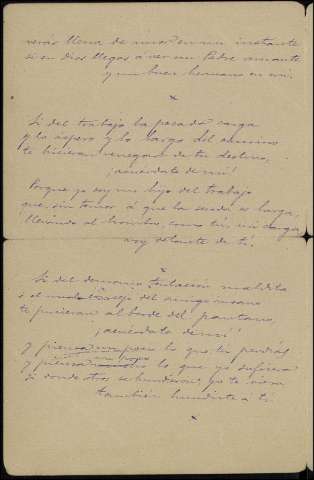 verás llena de amor en un instante
si en Dios llegas á ver un Padre amante
y un buen hermano en mi.
x
Si del trabajo la pesada carga
y lo áspero y lo largo del camino
te hicieran renegar de tu destino,
¡acuérdate de mi!
Porque yo soy un hijo del trabajo
que, sin temor á que la senda es larga,
llevando al hombro, como tú, mi carga
voy delante de ti.
x
Si del demonio tentación maldita
ó el mal consejo del amigo insano
te pusieran al borde del pantano,
¡acuérdate de mi!
Y piensa un poco lo que tu perdías
y piensa un poco lo que yo sufriera
si donde otros se hundieron yo te viera
también hundirte á ti.
x